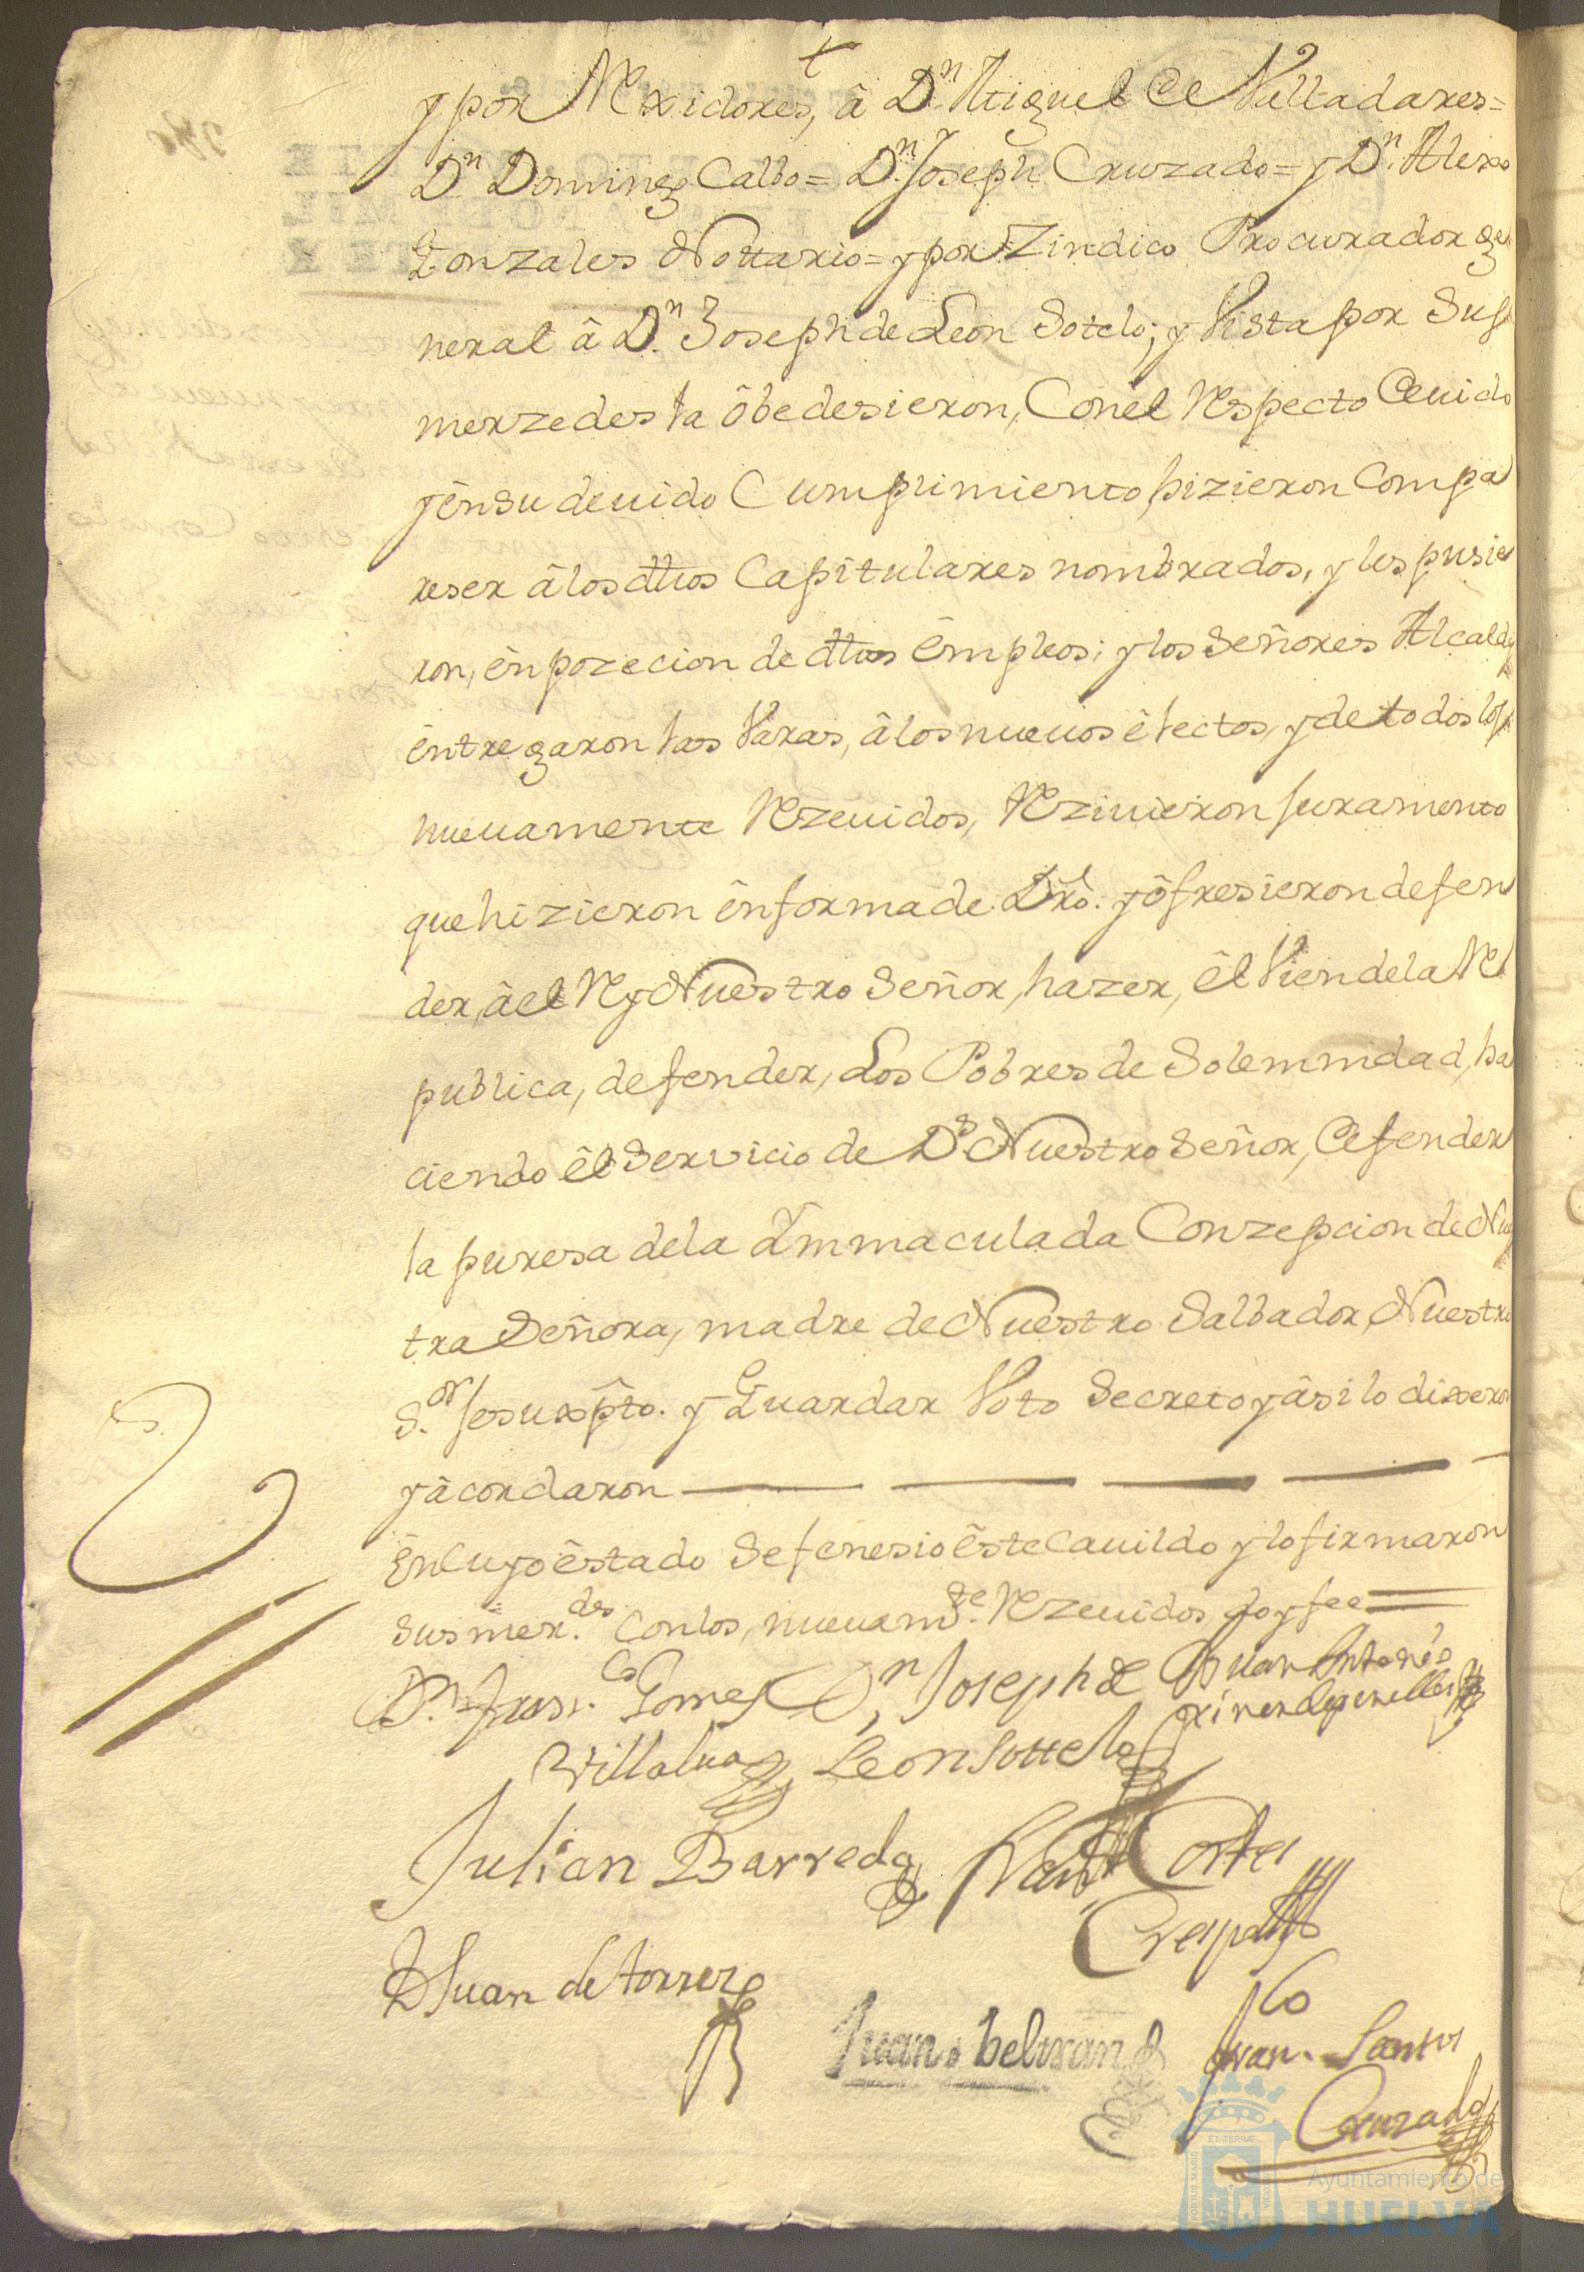 t
y por Rexidores, â Dn. Miguel de Valladares=
Dn Domingo Calbo= Dn. Joseph Cruzado= y Dn. Alexo
Gonzales Nottario= y por Zindico Procurador ge
neral â Dn. Joseph de Leon Sotelo; y Vista por Sus
merzedes la ôbedesieron, Con el Respecto Deuido
y ên su deuido Cumplimiento, hizieron Compa
reser â los dhos Capitulares nombrados, y les pusie
ron, ên pozecion de dhos êmpleos; y los Señores Alcaldes
êntregaron las Varas, â los nueuos êlectos, y de todos los
nueuamente Rezeuidos, Reziuieron Juramento
que hizieron ên forma de Dro. y ôfresieron defen
der, âel Rey Nuestro Señor, hazer, êl Vien de la Re
publica, defender, Los Pobres de Solemnidad, ha
ciendo êl Servicio de Ds Nuestro Señor, Defender
la puresa de la Ymmaculada Conzepcion de Nues
tra Señora, madre de Nuestro Salbador, Nuestro
S.or Jesuxpto. y Guardar Voto Secreto y âsi lo dixeron
y âcordaron
En Cuyo êstado Se fenesio êste Cauildo y lo firmaron
Sus mer.des Con los, nueuam.te Rezeuidos, doy fee
Dn. Fran.co Gomez Dn, Joseph de Juan Antonio
Villalua Leon Sottelo
Julian Barreda Cortes
Crespo
D Juan de torres
Juan beltran Fran.co Santos
Cruzado
PORTUS MARIS
ET TERRAE
CUSTODIA
Ayuntamiento de
HUELVA